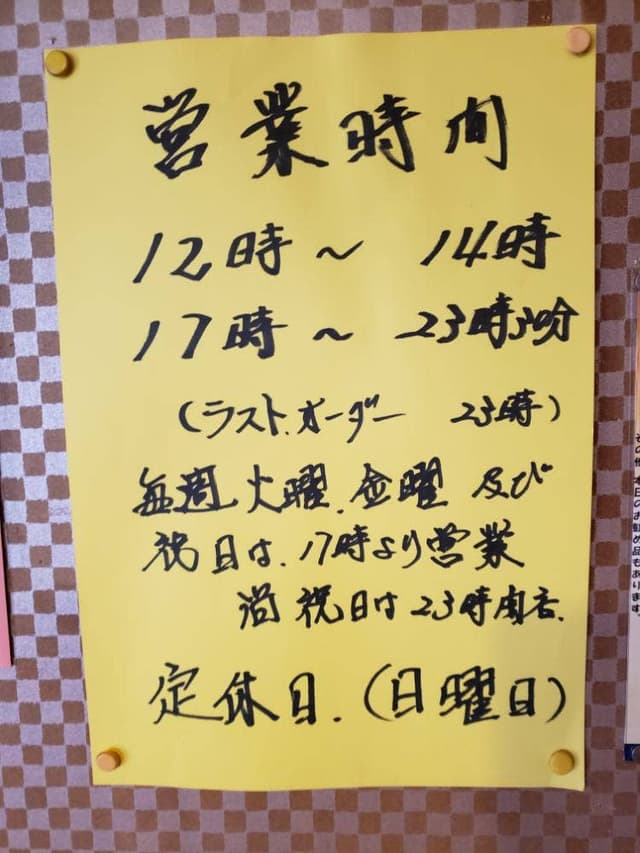 営業時間
12時～14時
17時～23時30分
(ラスト.オーダー 23時)
毎週火曜.金曜及び
祝日は.17時より営業
尚祝日は23時閉店.
定休日.(日曜日)
その他、本日のお勧め品もあります。